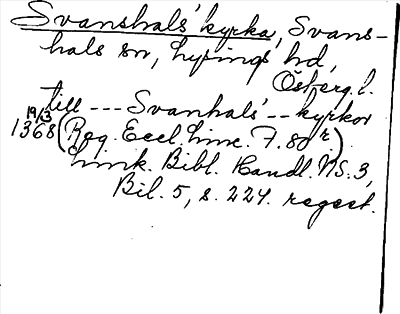 Svanshals' kyrka, Svans-
hals sn, Lysings hd,
Östergl.
till --- Svanhals' -- kyrkor
19/3
1368 (Reg. Eccl. Linc. F. 80 r.)
Link. Bibl. Handl. NS. 3,
Bil. 5, s. 224. regest.